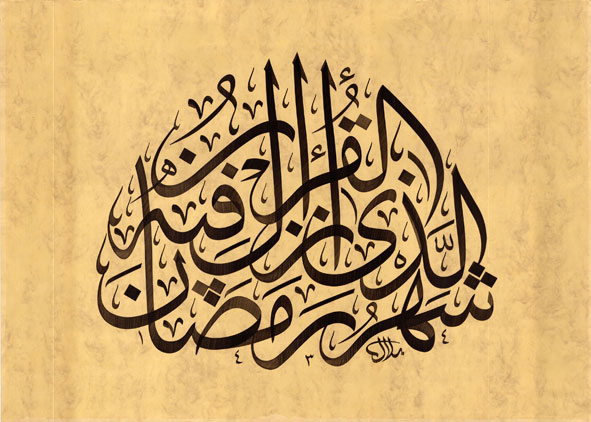 شَهْرُ رَمَضَانَ
الَّذِي أُنْزِلَ فِيهِ
الْقُرْآنُ
١٤٣٤